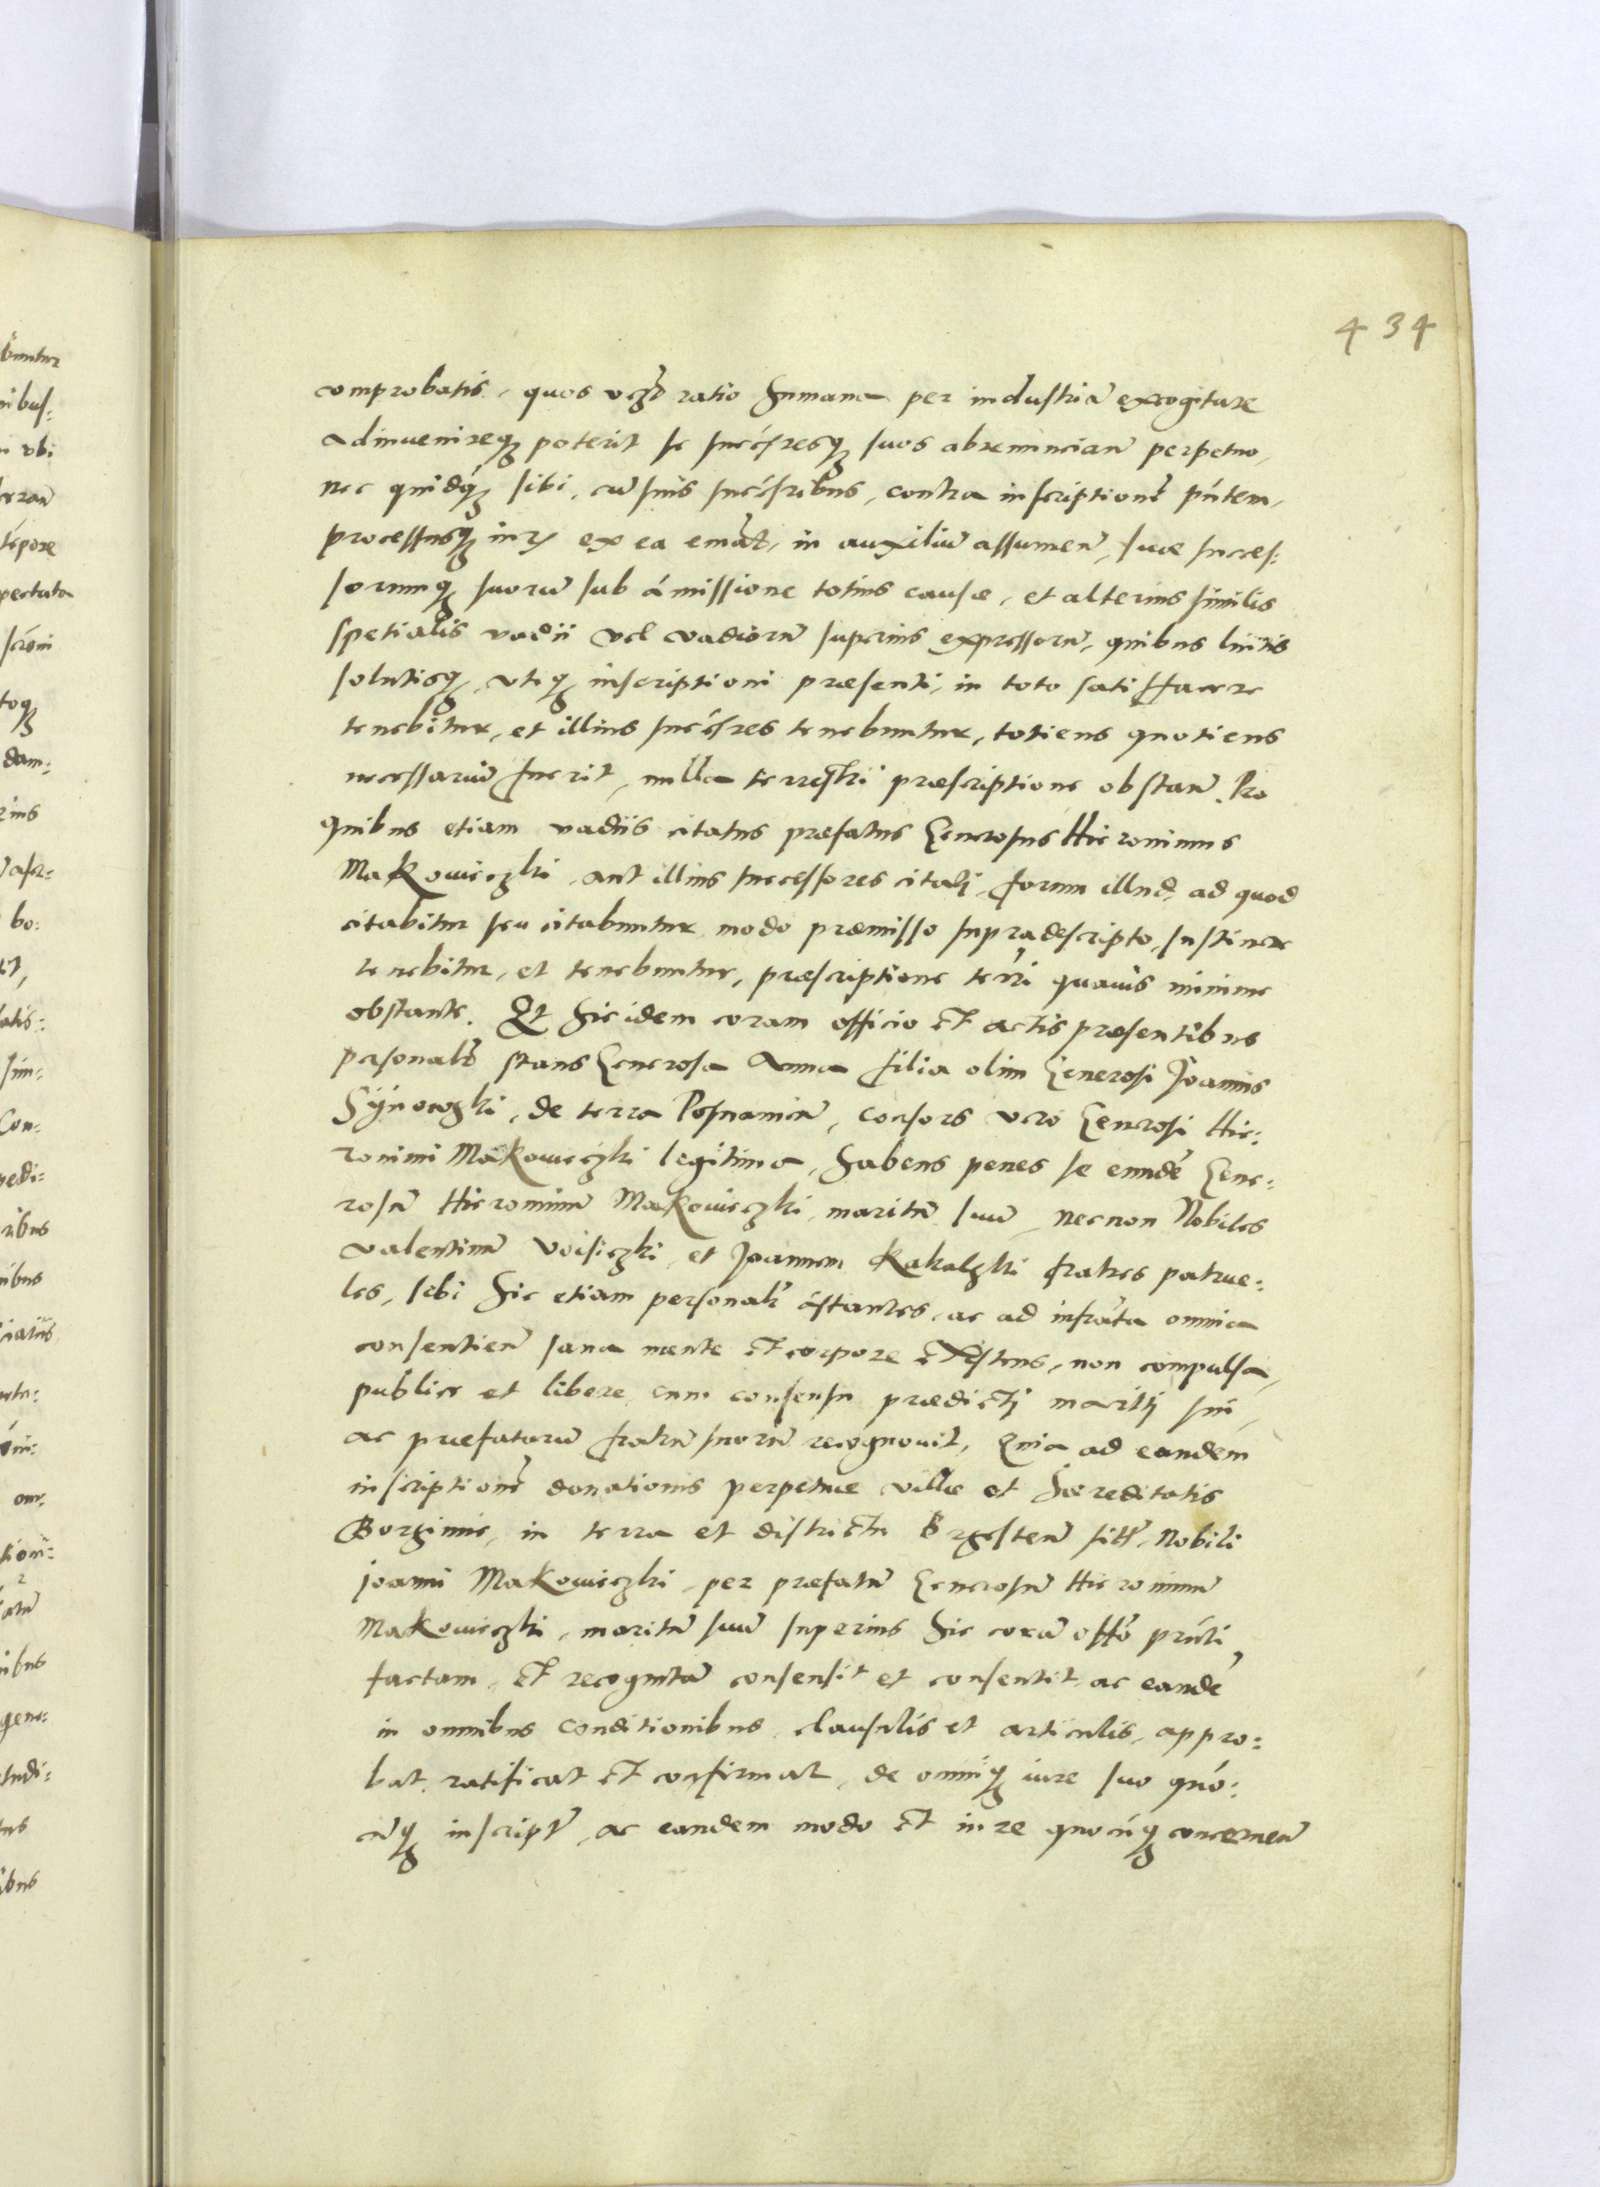 434
comprobatis, quos vꝫ ratio humana per industriã excogitare
adinuenireqꝫ poterit se succ̃resqꝫ suos abrenuncian̄ perpetuo,
nec quidq́ꝫ sibi, cũ suis succ̃ribus, contra inscriptionẽ pñtem,
processusqꝫ iurꝭ ex ea emãt, in auxiliũ assumen̄, suæ succes:
sorumqꝫ suorũ sub ámissione totius causæ, et alterius similis
spetialis vadii vel vadiorũ superius expressorũ, quibus luitis
solutisqꝫ, vtiqꝫ inscriptioni præsenti, in toto satisfacere
tenebitur, et illius succ̃res tenebuntur, totiens quotiens
necessariũ fuerit, nulla terrestri præscriptione obstan̄. Pro
quibus etiam vadiis citatus præfatus Generosus Hieronimus
Makowieczki, aut illius successores citatj, forum illud, ad quod
citabitur seu citabuntur modo præmisso supradescripto, sustinere
tenebitur, et tenebuntur, præscriptione terr̃i quauis minime
obstante. Et hic idem coram officio et actis præsentibus
personalr̃ stans Generosa Anna filia olim Generosi Joannis
de terra Posnanien̄, consors vero Generosi Hie:
ronimi Makowieczki legitima, habens penes se eundẽ Gene:
rosũ Hieronimũ Makowieczki, maritũ suũ, necnon Nobiles
Valentinũ et Joannem frates patrue:
les, sibi hic etiam personalr̃ ástantes, ac ad infrãta omnia
consentien̄ sana mente et corpore existens, non compulsa,
publice et libere cum consensu prædictj maritj sui,
ac præfatorũ fratrũ suorũ recognouit, Quia ad eandem
inscriptionẽ donationis perpetuæ villæ et hæreditatis
in terra et districtu Brzesten̄ sitæ, Nobili
Joanni Makowieczki, per præfatũ Generosũ Hieronimũ
Makowieczki, maritũ suũ superius hic corã offõ pñti
factam, et recognitã consensit et consentit, ac eandẽ
in omnibus conditionibus, clausulis et articulis, appro:
bat, ratificat et confirmat, de omniqꝫ iure suo quó:
cũqꝫ inscripť, ac eandem modo et iure quocũqꝫ concernen̄